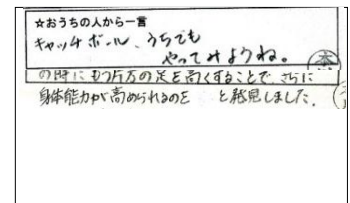 ☆おうちの人から一言
キャッチボール、うちでも
やってみようね。
の時にもう片方の足を高くすることで、さらに
身体能力が高められるのを と発見しました。